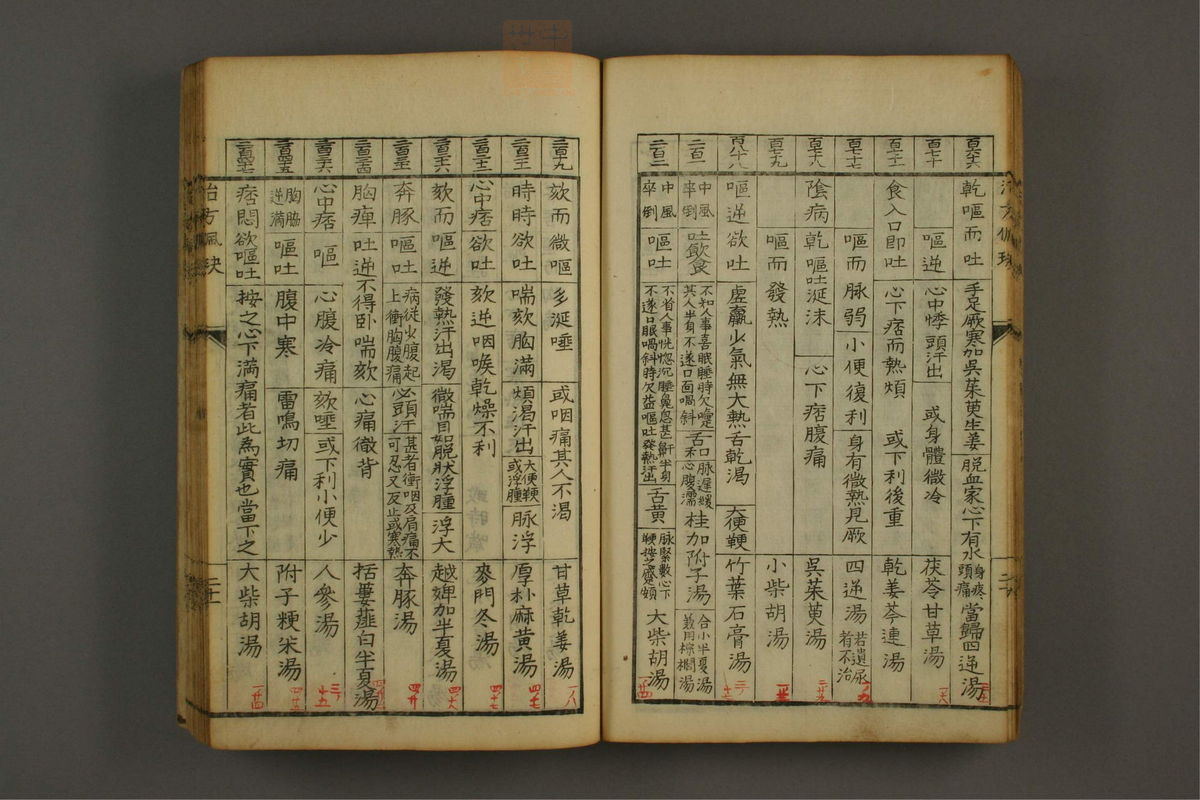 乾嘔而吐 手足厥寒加吳茱萸生姜 脱血家心下有水 身疼頭痛 當歸四逆湯
嘔逆 心中悸頭汗出 或身體微冷 茯苓甘草湯
食入口即吐 心下痞而熱煩 或下利後重 乾姜芩連湯
嘔而脉弱 小便復利 身有微熱見厥 四逆湯 若遺尿者不治
陰病乾嘔吐涎沫 心下痞腹痛 吳茱萸湯
百七十九 嘔而發熱 小柴胡湯
百八十八 嘔逆欲吐 虛羸少氣無大熱舌乾渴 大便鞕 竹葉石膏湯
二百一 中風卒倒 吐飲食 不知人事喜眠睡時欠嚏其人半身不遂口面喎斜 舌和 口心 脉遲緩 腹濡 桂加附子湯 合小半夏湯兼用棕櫚湯
二百二 中風卒倒 嘔吐 不省人事恍惚沉睡鼻息甚鼾半身不遂口眼喎斜時欠益嘔吐發熱汗出 舌黄 脉緊數心下鞕 大柴胡湯
欬而微嘔 多涎唾 或咽痛其人不渴 甘草乾姜湯
時時欲吐 喘欬胸滿 煩渴汗出 大便鞕或浮腫 脉浮 厚朴麻黄湯
心中痞欲吐 欬逆咽喉乾燥不利 麥門冬湯
欬而嘔逆 發熱汗出渴 微喘目如脱狀浮腫 浮大 越婢加半夏湯
奔豚 嘔吐 病從少腹起上衝胸腹痛 必頭汗 甚者衝咽及肩痛不可忍又反止或寒熱 奔豚湯
胸痺 吐逆 不得卧喘欬 心痛徹背 括蔞薤白半夏湯
心中痞 嘔 心腹冷痛 欬唾 或下利小便少 人參湯
胸脇逆滿 嘔吐 腹中寒 雷鳴切痛 附子粳米湯
痞悶欲嘔吐 按之心下滿痛者此為實也當下之 大柴胡湯